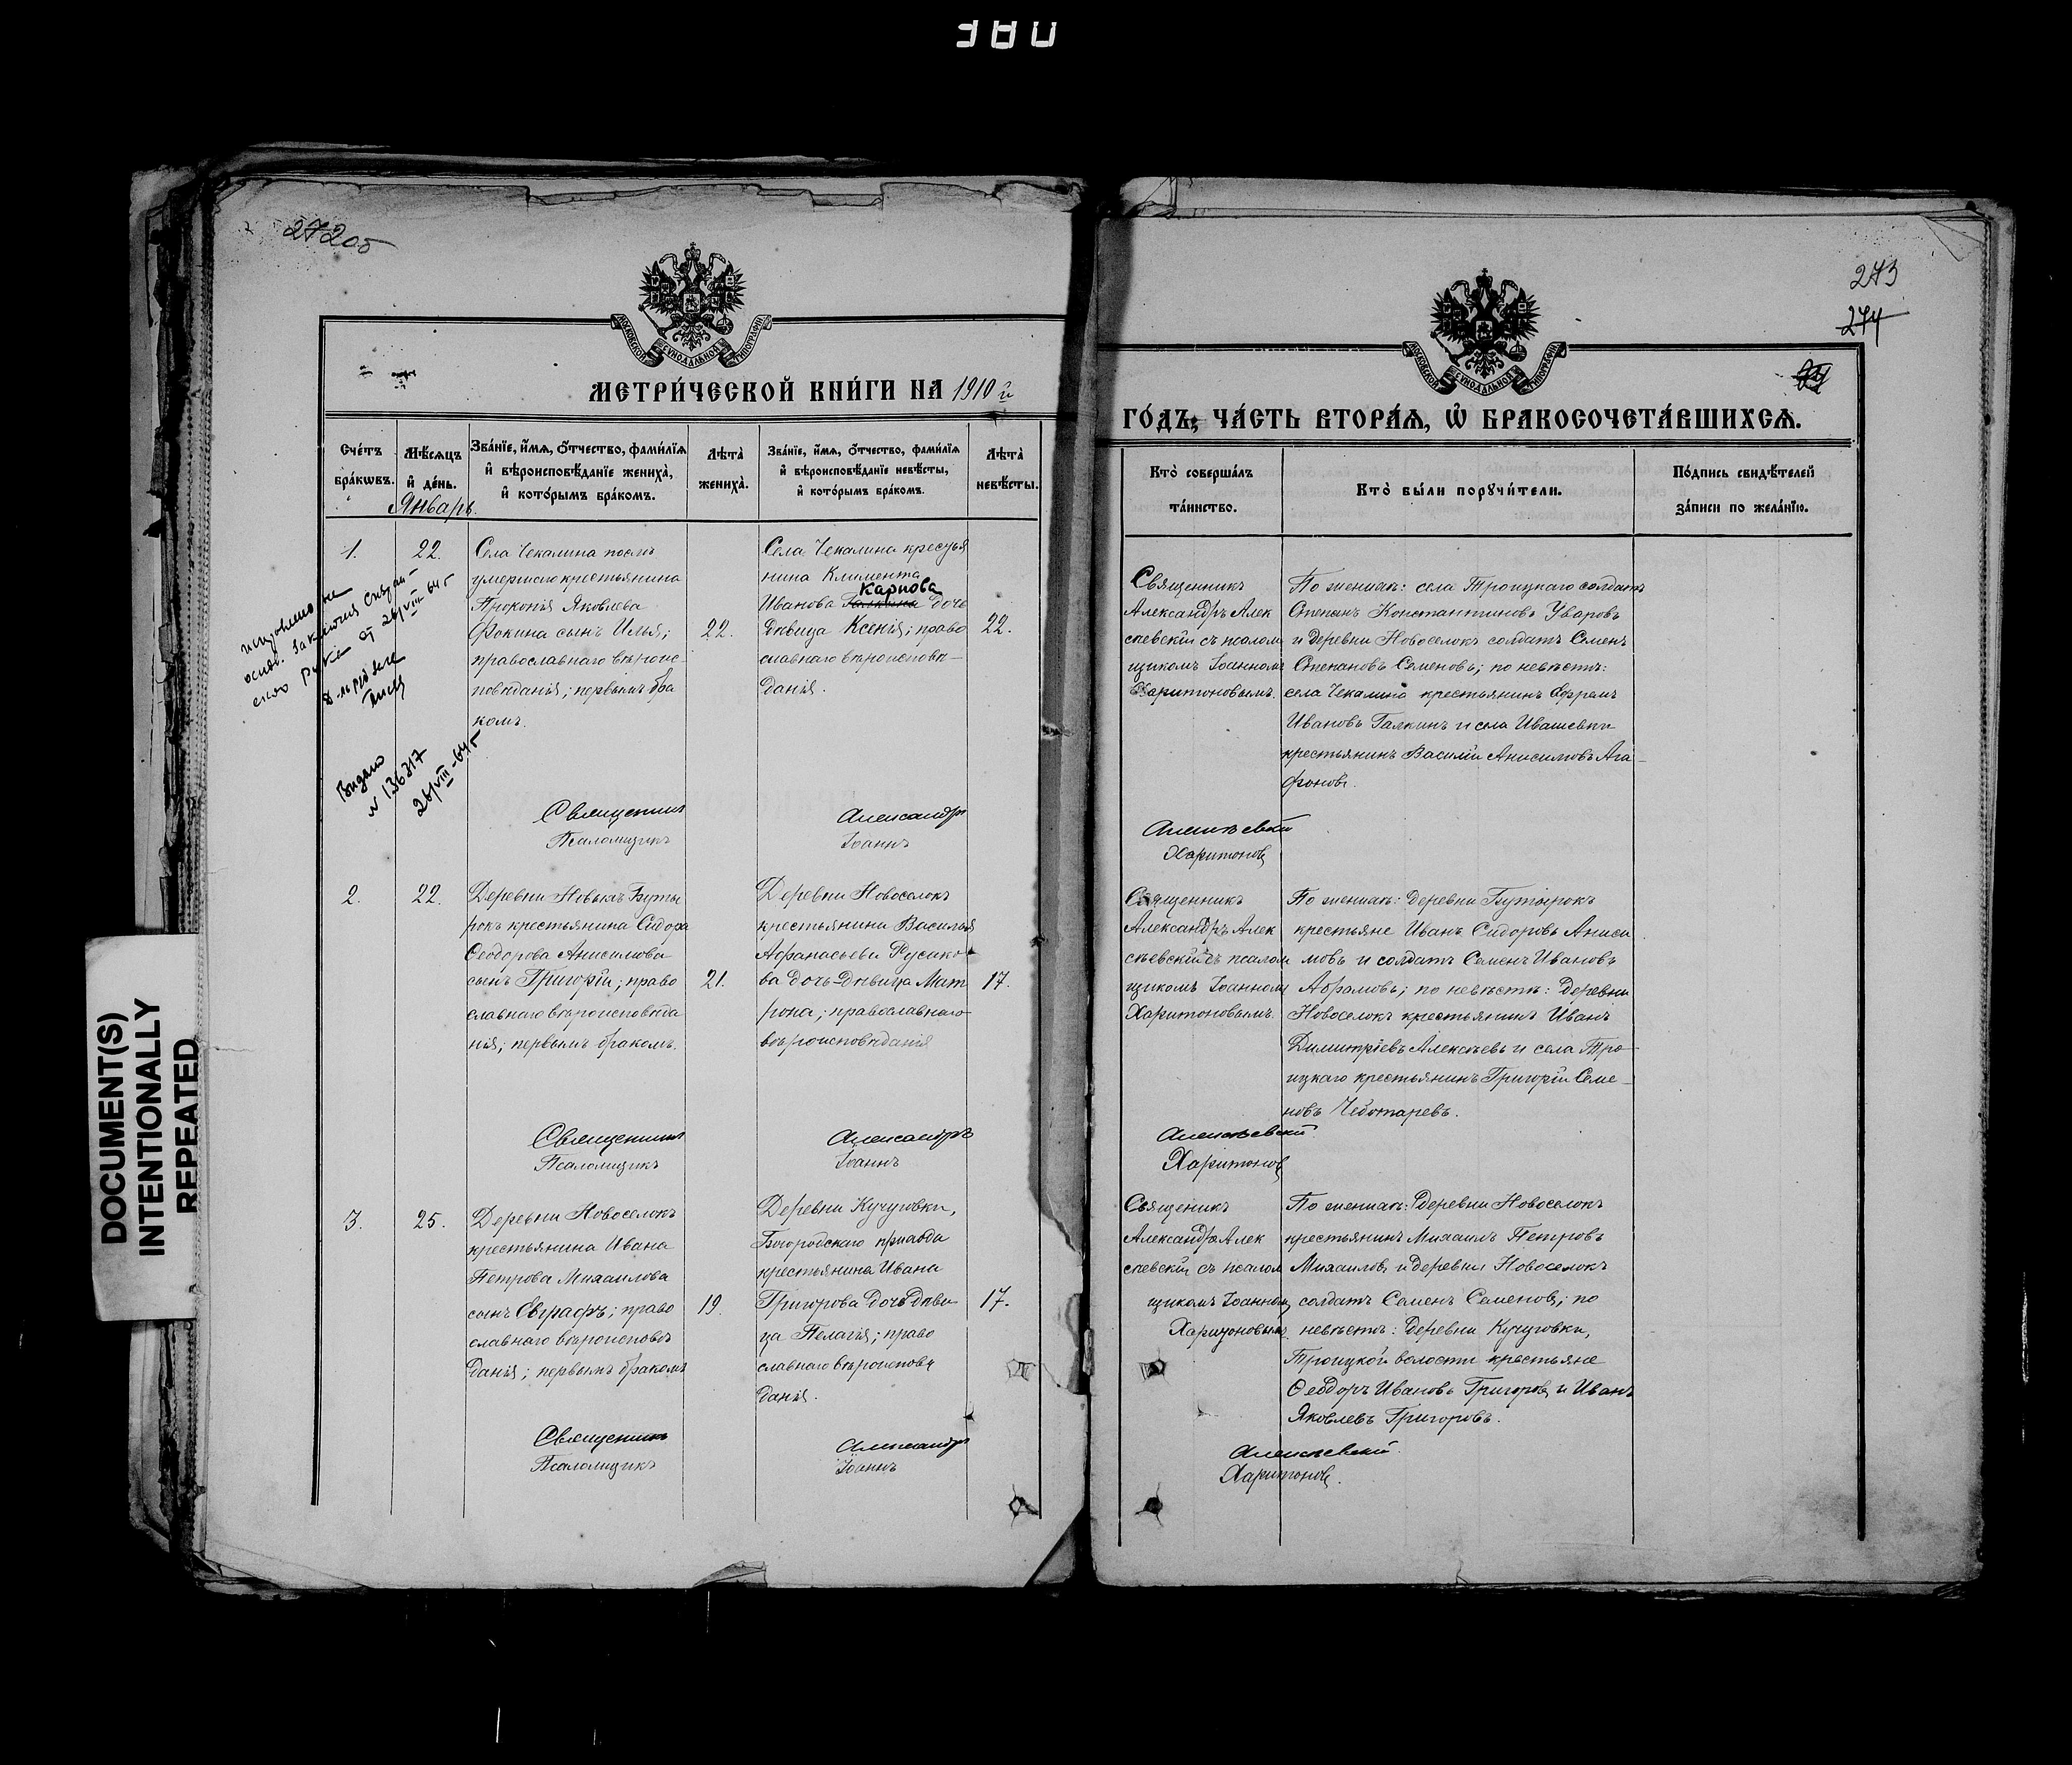 380
272об
273
274
МОСКОВСКОЙ СѴНОДАЛЬНОЙ ТИПОГРАФІИ
МЕТРИ́ЧЕСКОЙ КНИ́ГИ НА 1910 й
Сче́тъ бра́кѡвъ.
Мѣ́сяцъ и҆ де́нь.
Январь.
Зва́нїе, и҆́мѧ, ѻ҆́тчество, фами́лїѧ
и҆ вѣроисповѣ́данїе жениха̀,
и҆ кото́рымъ бра́комъ.
Лѣта̀ жениха̀.
Зва́нїе, и҆́мѧ, ѻ҆́тчество, фами́лїѧ
и҆ вѣроисповѣ́данїе невѣ́сты,
и҆ кото́рымъ бра́комъ.
Лѣта̀ невѣ́сты.
1.
22.
Села Чекалина послѣ
умершаго крестьянина
Прокопія Яковлева
Фокина сынъ Илья;
православнаго вѣроис-
повѣданія; первымъ бра
комъ.
22.
Села Чекалина крестья
нина Климента
Карпова
Иванова Галкина дочь
дѣвица Ксенія; право
славнаго вѣроисповѣ-
данія.
22.
Выдано
N 136317
26/VIII-64 г
Священникъ Александръ
Псаломщикъ Іоаннъ
2.
22.
Деревни Новыхъ Буты
рокъ крестьянина Сидора
Ѳеодорова Анисимова
сынъ Григорій; право
славнаго вѣроисповѣда
нія; первымъ бракомъ.
21.
Деревни Новоселокъ
крестьянина Василья
Афанасьева Русако-
ва дочь дѣвица Мат
рона; православнаго
вѣроисповѣданія
17.
Священникъ Александръ
Псаломщикъ Іоаннъ
3.
25.
Деревни Новоселокъ
крестьянина Ивана
Петрова Михаилова
сынъ Евграфъ; право
славнаго вѣроисповѣ
данія; первымъ бракомъ
19.
Деревни Кучуговки,
Богородскаго прихода
крестьянина Ивана
Григорова дочь дѣви
ца Пелагія; право
славнаго вѣроисповѣ
данія.
17.
Священникъ Александръ
Псаломщикъ Іоаннъ
ГО́ДЪ, ЧА́СТЬ ВТОРА́Ѧ, Ѡ҆ БРАКОСОЧЕТА́ВШИХСѦ.
МОСКОВСКОЙ СѴНОДАЛЬНОЙ ТИПОГРАФІИ
Кто̀ соверша́лъ
та́инство.
Кто̀ бы́ли порꙋчи́тели.
По́дпись свидѣ́телей
за́писи по жела́нїю.
Священникъ
Александръ Алек
сѣевскій съ псалом
щикомъ Іоанномъ
Харитоновымъ.
По женихѣ: села Троицкаго солдатъ
Степанъ Константиновъ Уваровъ
и деревни Новоселокъ солдатъ Семенъ
Степановъ Семеновъ; по невѣстѣ:
села Чекалина крестьянинъ Ефремъ
Ивановъ Галкинъ и села Ивашевки
крестьянинъ Василій Анисимовъ Ага-
фоновъ.
Алексѣевскій
Харитоновъ
Священникъ
Александръ Алек
сѣевскій съ псалом
щикомъ Іоанномъ
Харитоновымъ.
По женихѣ: деревни Бутырокъ
крестьяне Иванъ Сидоровъ Аниси
мовъ и солдатъ Семенъ Ивановъ
Абрамовъ; по невѣстѣ: деревни
Новоселокъ крестьянинъ Иванъ
Димитріевъ Алексѣевъ и села Тро-
ицкаго крестьянинъ Григорій Семе-
новъ Чеботаревъ.
Алексѣевскій
Харитоновъ
Священикъ
Александръ Алек
сѣевскій съ псалом
щикомъ Іоанномъ
Харитоновымъ.
По женихѣ: деревни Новоселокъ
крестьянинъ Михаилъ Петровъ
Михаиловъ и деревни Новоселокъ
солдатъ Семенъ Семеновъ; по
невѣстѣ: деревни Кучуговки,
Троицкой волости крестьяне
Ѳеодоръ Ивановъ Григоровъ и Иванъ
Яковлевъ Григоровъ.
Алексѣевскій
Харитоновъ.
DOCUMENT(S)
INTENTIONALLY
REPEATED